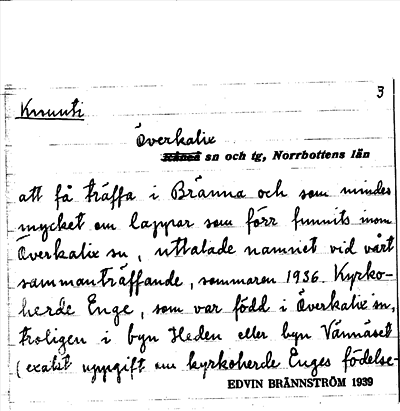 3
Knuuti
Överkalix
Råneå sn och tg, Norrbottens län
att få träffa i Bränna och som mindes
mycket om lappar som förr funnits inom
Överkalix sn, uttalade namnet vid vårt
sammanträffande, sommaren 1936. Kyrko-
herde Enge, som var född i Överkalix sn,
troligen i byn Heden eller byn Vännäset
(exakt uppgift om kyrkoherde Enges födelse-
EDVIN BRÄNNSTRÖM 1939